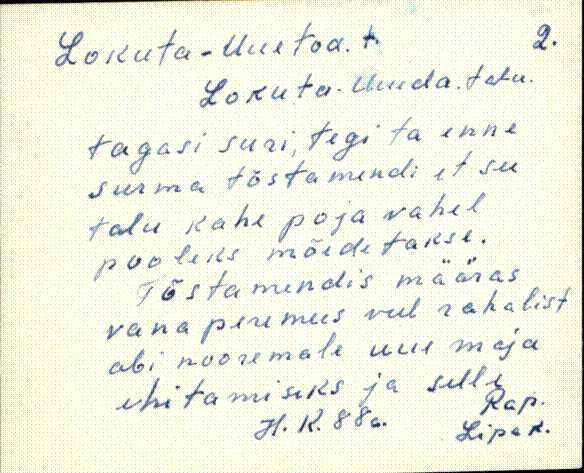 Lokuta-Uuetoa. t. 2.
Lokuta-Uueda. talu.
tagasi suri, tegi ta enne
surma tõstamendi et su
talu kahe poja vahel
pooleks mõedetakse.
Tõstamendis määras
vana peremees vul rahalist
abi nooremale uue maja
ehitamiseks ja selle
H. K. 88a. Rap.
Lipak.